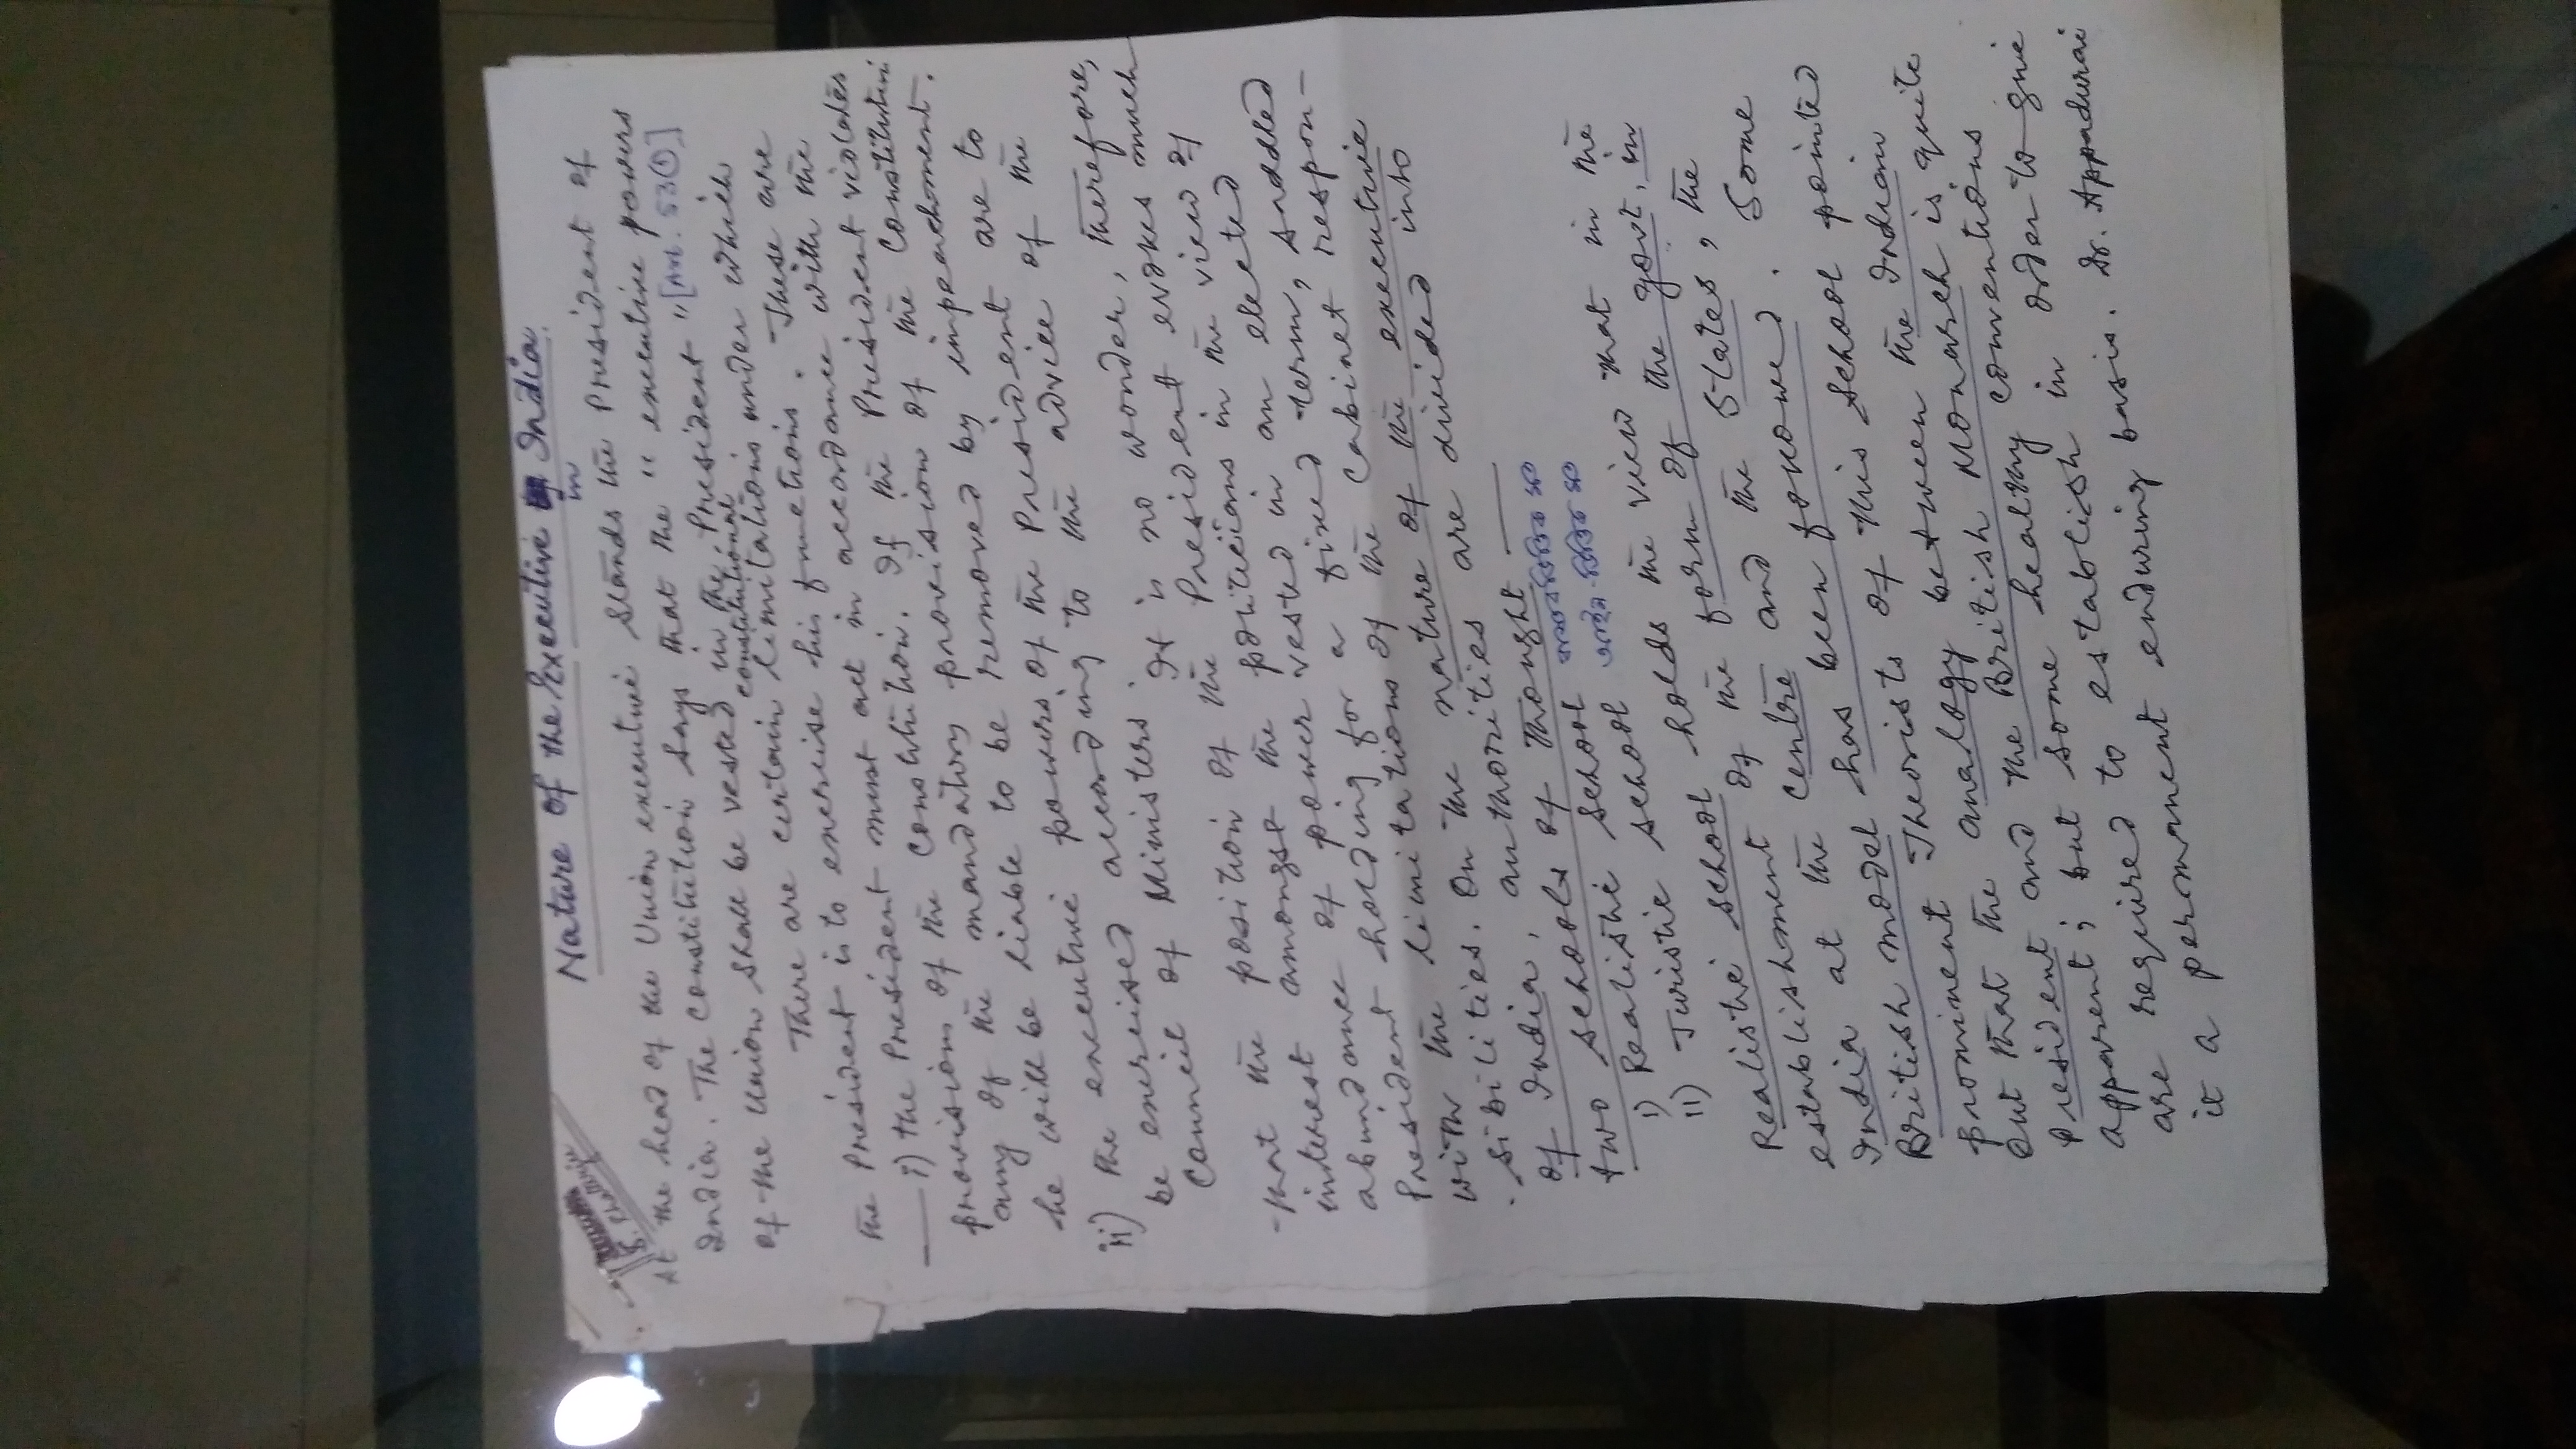 Nature of the Executive in India
At the head of the Union executive stands the President of
India. The Constitution says that the "executive powers
of the Union shall be vested in the President" [Art. 53(1)]
There are certain constitutional limitations under which
the President is to exercise his functions. These are
i) the President must act in accordance with the
provisions of the Constitution. If the President violates
any of the mandatory provision of the Constitution
he will be liable to be removed by impeachment.
ii) The executive powers of the President are to
be exercised according to the advice of the
Council of Ministers.
It is no wonder, therefore,
that the position of the President evokes much
interest amongst the politicians in the view of
abundance of power vested in an elected
President holding for a fixed term, saddled
with the limitations of the cabinet respon-
sibilities. On the nature of the executive
of India, authorities are divided into
two schools of thought
i) Realistic school
ii) Juristic school
Realistic school holds the view that in the
establishment of the form of the govt. in
India at the Centre and the States, the
British model has been followed. Some
prominent Theorists of this school pointed
out that the analogy between the Indian
President and the British Monarch is quite
apparent; but some healthy conventions
are required to establish in order to give
it a permanent enduring basis. Dr. Appadurai